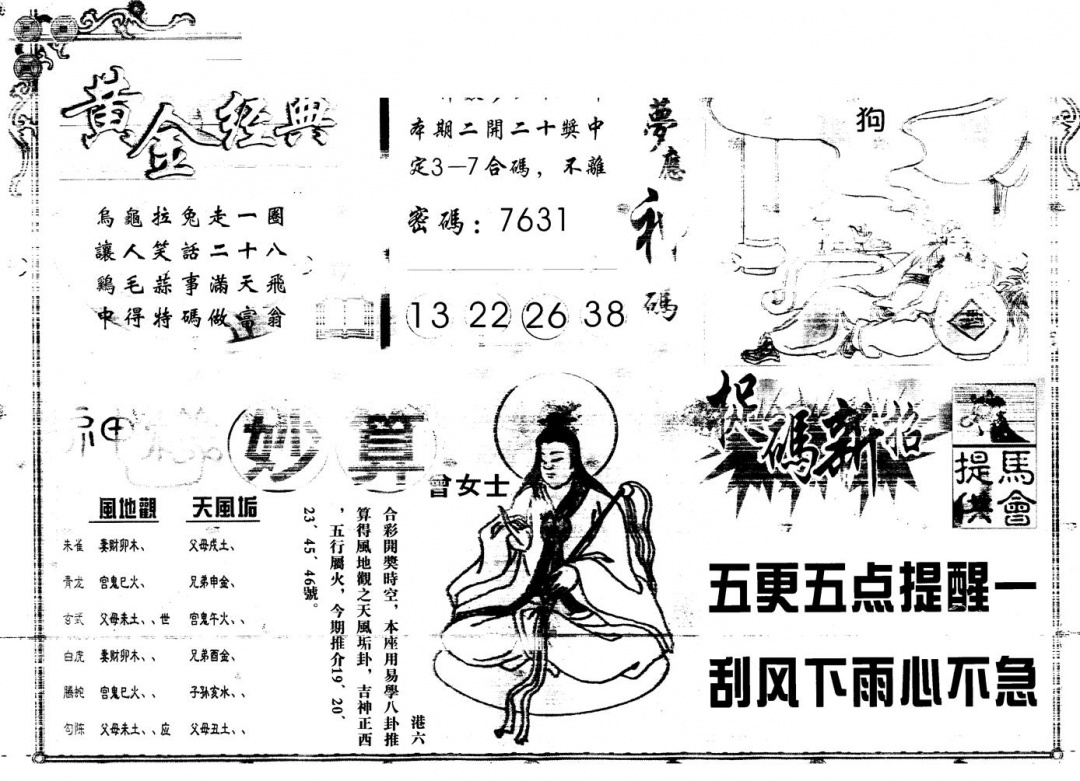 黃金經典
烏龜拉兔走一圈
讓人笑話二十八
鷄毛蒜事滿天飛
中得特碼做富翁
本期二開二十獎中
定3—7合碼，不離
密碼：7631
13 22 26 38
夢應
碼
狗
神
妙算
曾女士
風地觀 天風垢
朱雀 妻財卯木、 父母戌土、
青龙 宫鬼巳火、 兄弟申金、
玄武 父母未土、、世 宫鬼午火、、
白虎 妻財卯木、、 兄弟酉金、
腾蛇 宫鬼巳火、、 子孙亥水、、
勾陈 父母未土、、应 父母丑土、、
港六
合彩開獎時空，本座用易學八卦推
算得風地觀之天風垢卦，吉神正西
，五行屬火，今期推介19、20、
23、45、46號。
捉碼新招
馬會
提供
五更五点提醒一
刮风下雨心不急